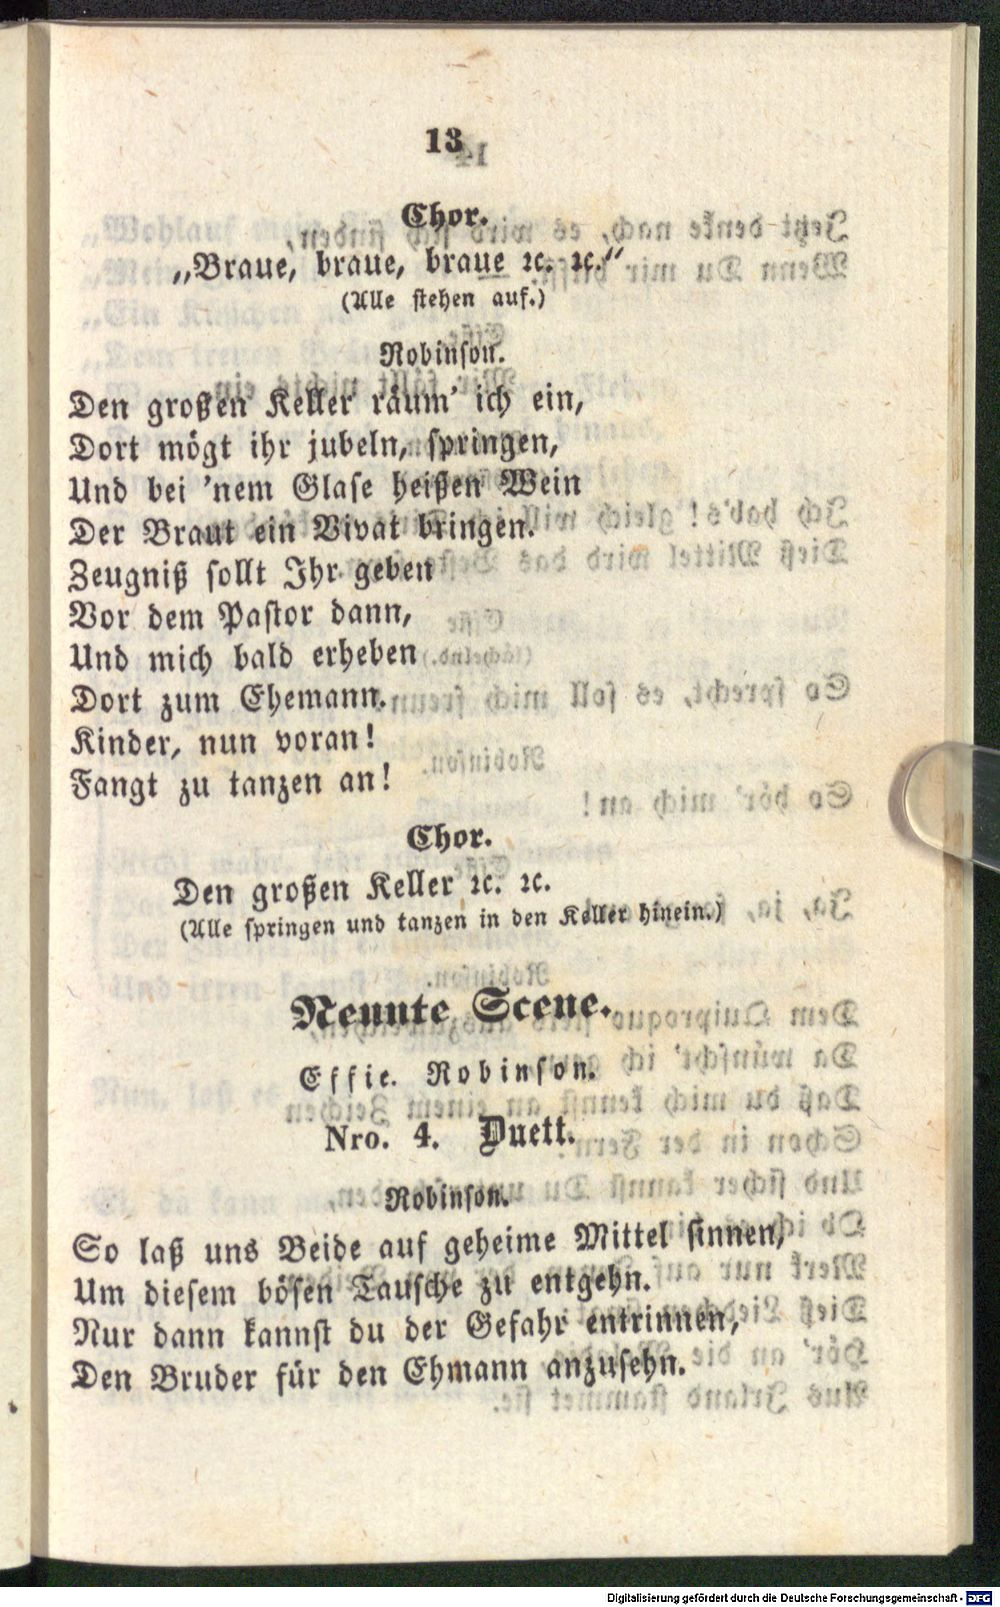 13
Chor.
„Braue, braue, braue ꝛc. ꝛc.“
(Alle stehen auf.)
Robinson.
Den großen Keller räum’ ich ein,
Dort mögt ihr jubeln, springen,
Und bei ’nem Glase heißen Wein
Der Braut ein Vivat bringen.
Zeugniß sollt Ihr geben
Vor dem Pastor dann,
Und mich bald erheben
Dort zum Ehemann.
Kinder, nun voran!
Fangt zu tanzen an!
Chor.
Den großen Keller ꝛc. ꝛc.
(Alle springen und tanzen in den Keller hinein.)
Neunte Scene.
Effie. Robinson.
Nro. 4. Duett.
Robinson.
So laß uns Beide auf geheime Mittel sinnen,
Um diesem bösen Tausche zu entgehn.
Nur dann kannst du der Gefahr entrinnen,
Den Bruder für den Ehmann anzusehn.
Digitalisierung gefördert durch die Deutsche Forschungsgemeinschaft - DFG